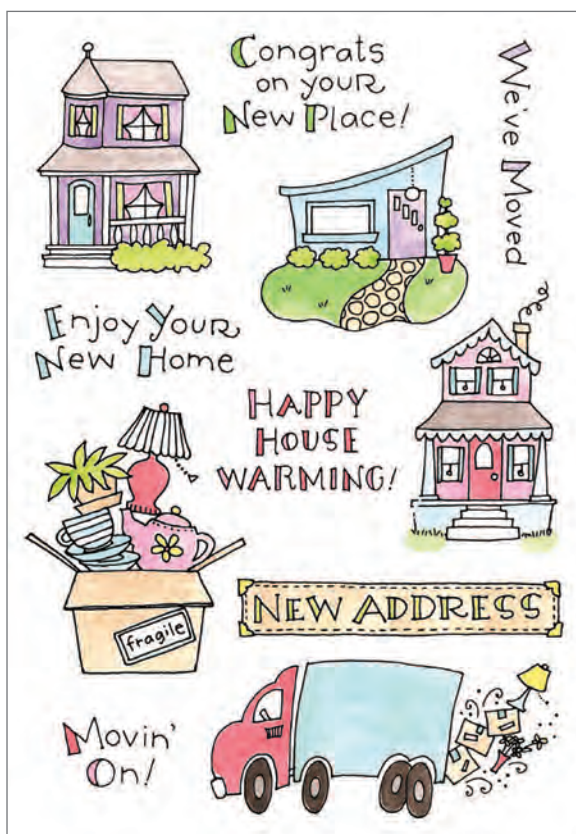 Congrats
on your
New Place!
We've Moved
Enjoy Your
New Home
HAPPY
HOUSE
WARMING!
fragile
NEW ADDRESS
Movin'
On!